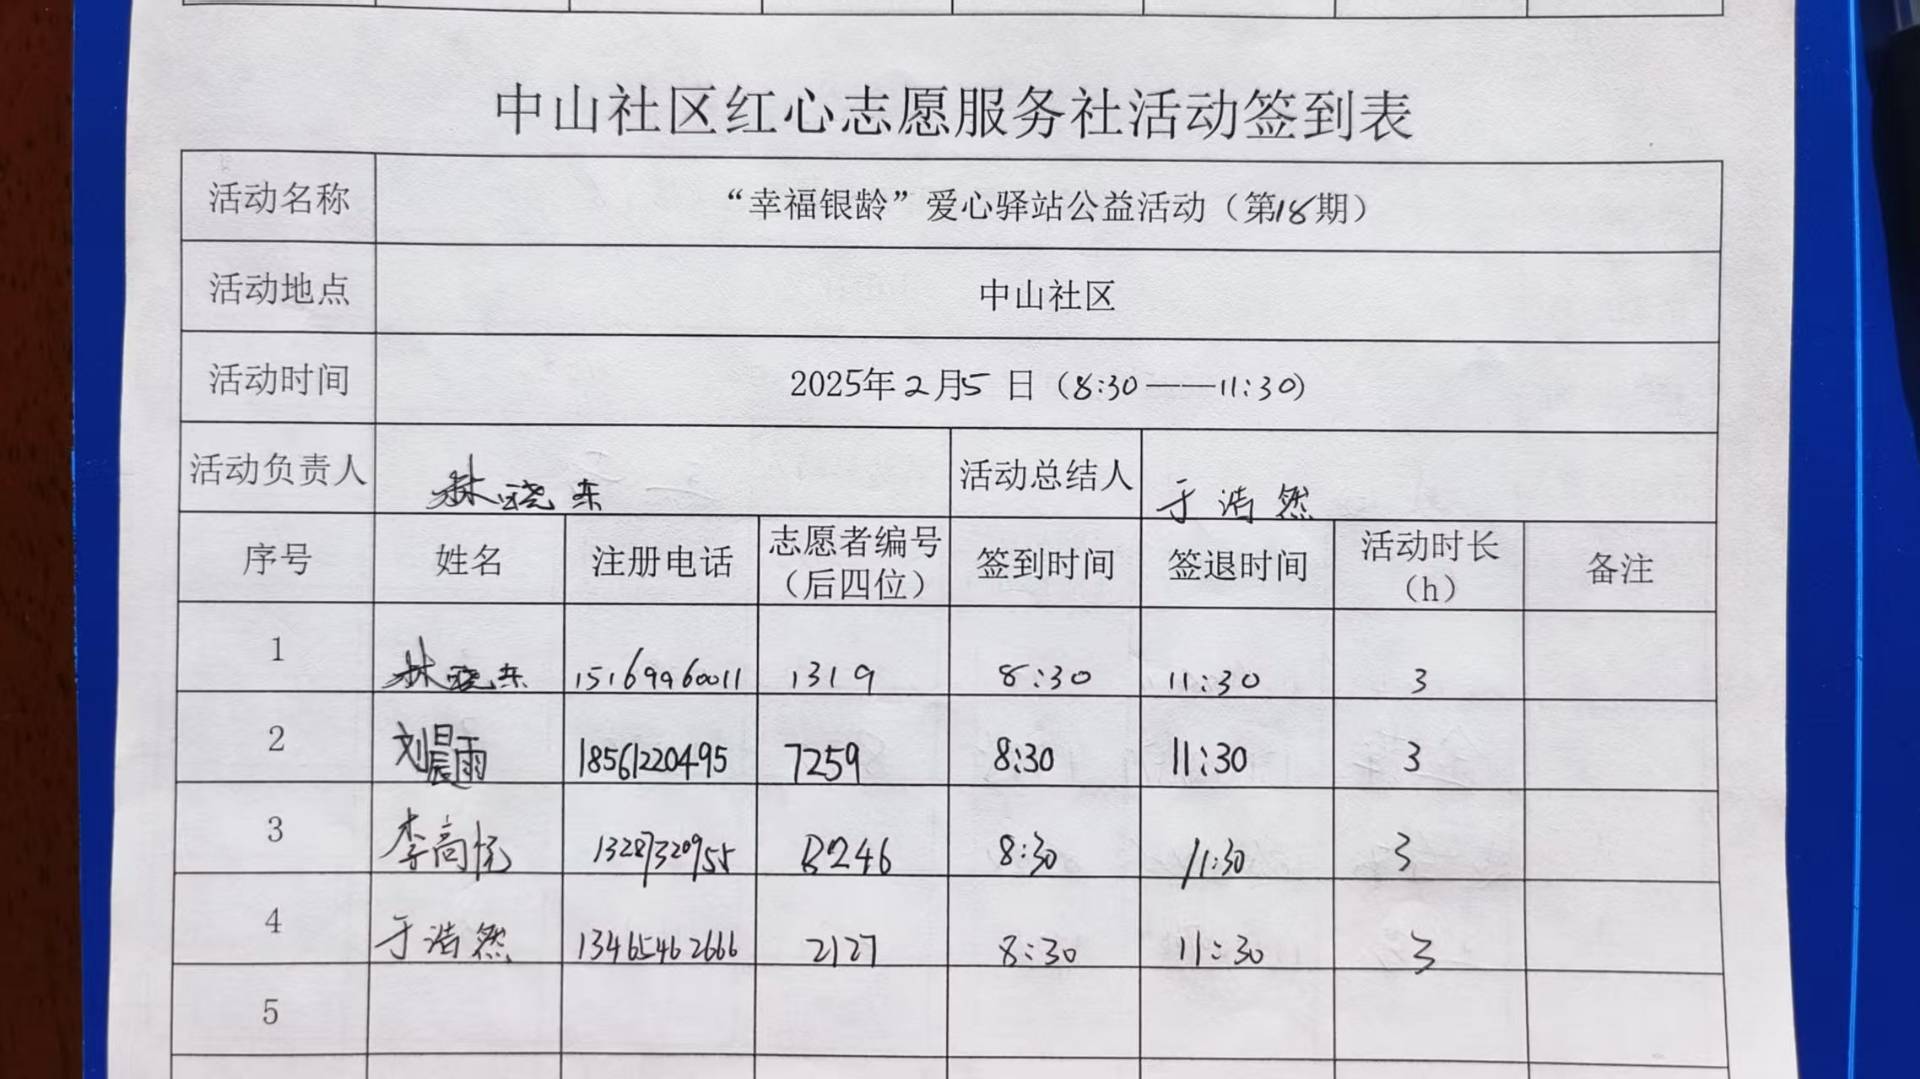 中山社区红心志愿服务社活动签到表
活动名称 “幸福银龄”爱心驿站公益活动（第18期）
活动地点 中山社区
活动时间 2025年2月5日（8:30——11:30）
活动负责人 林晓东 活动总结人 于浩然
序号 姓名 注册电话 志愿者编号（后四位） 签到时间 签退时间 活动时长（h） 备注
1 林晓东 15169960011 1319 8:30 11:30 3
2 刘晨雨 18561220495 7259 8:30 11:30 3
3 李高 13287320955 8:30 11:30 3
4 于浩然 13465462666 2127 8:30 11:30 3
5